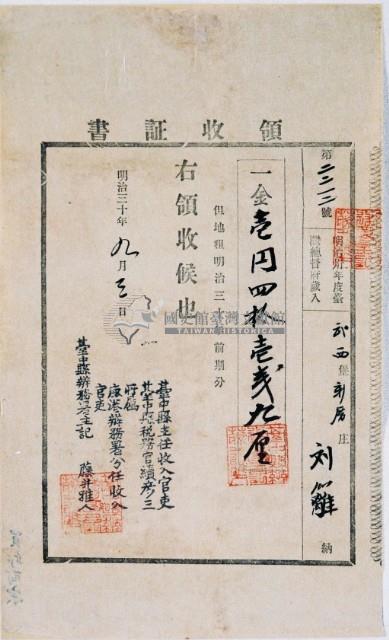 領收証書
第二二一二號
明治卅年度臺
灣總督府歲入
武西堡新厝庄
劉 納
一金壹円四拾壹戔九厘
但地租明治三十年前期分
右領收候也
明治三十年九月三日
臺中縣主任收入官吏
臺中縣稅務官
鹿港辦務署分任收入
官吏
臺中縣辦務署主記
藤井雅人
國史館臺灣文獻館
TAIWAN HISTORICA